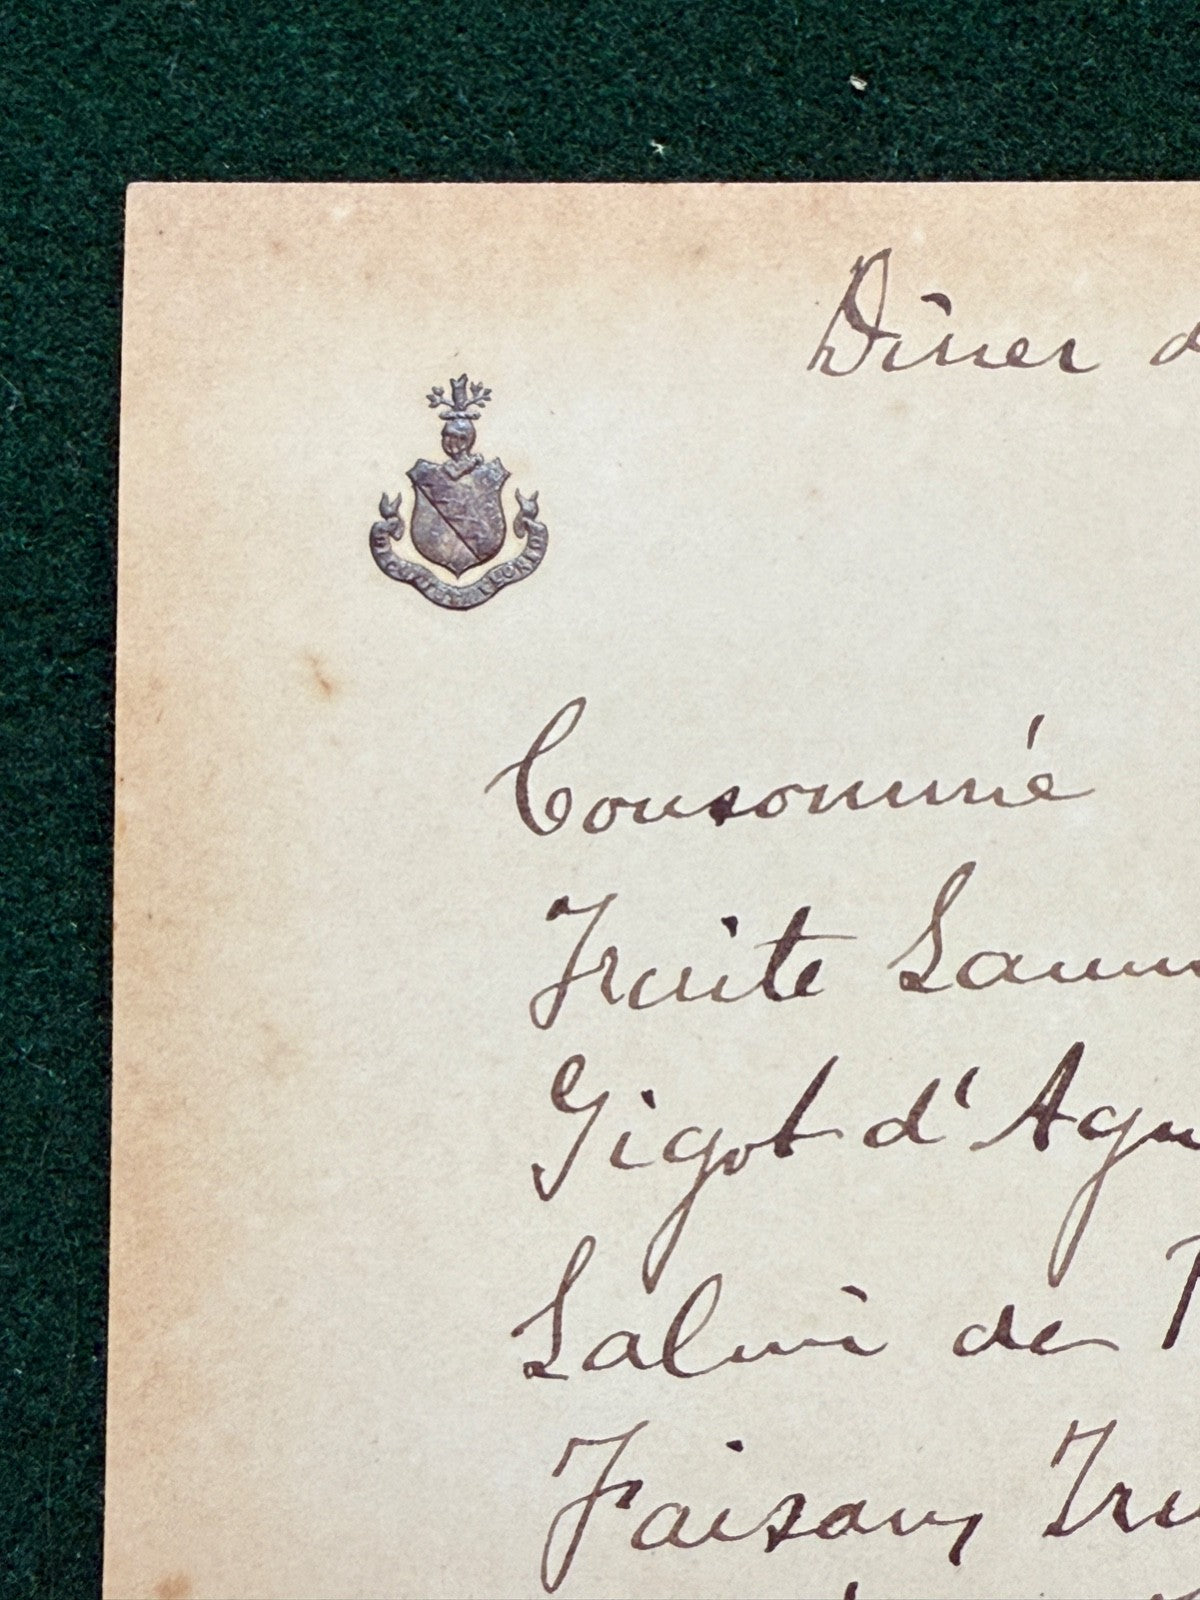 Dîner d
Consommé
Truite Saum
Gigot d'Agn
Salmi de P
Faisans Tru